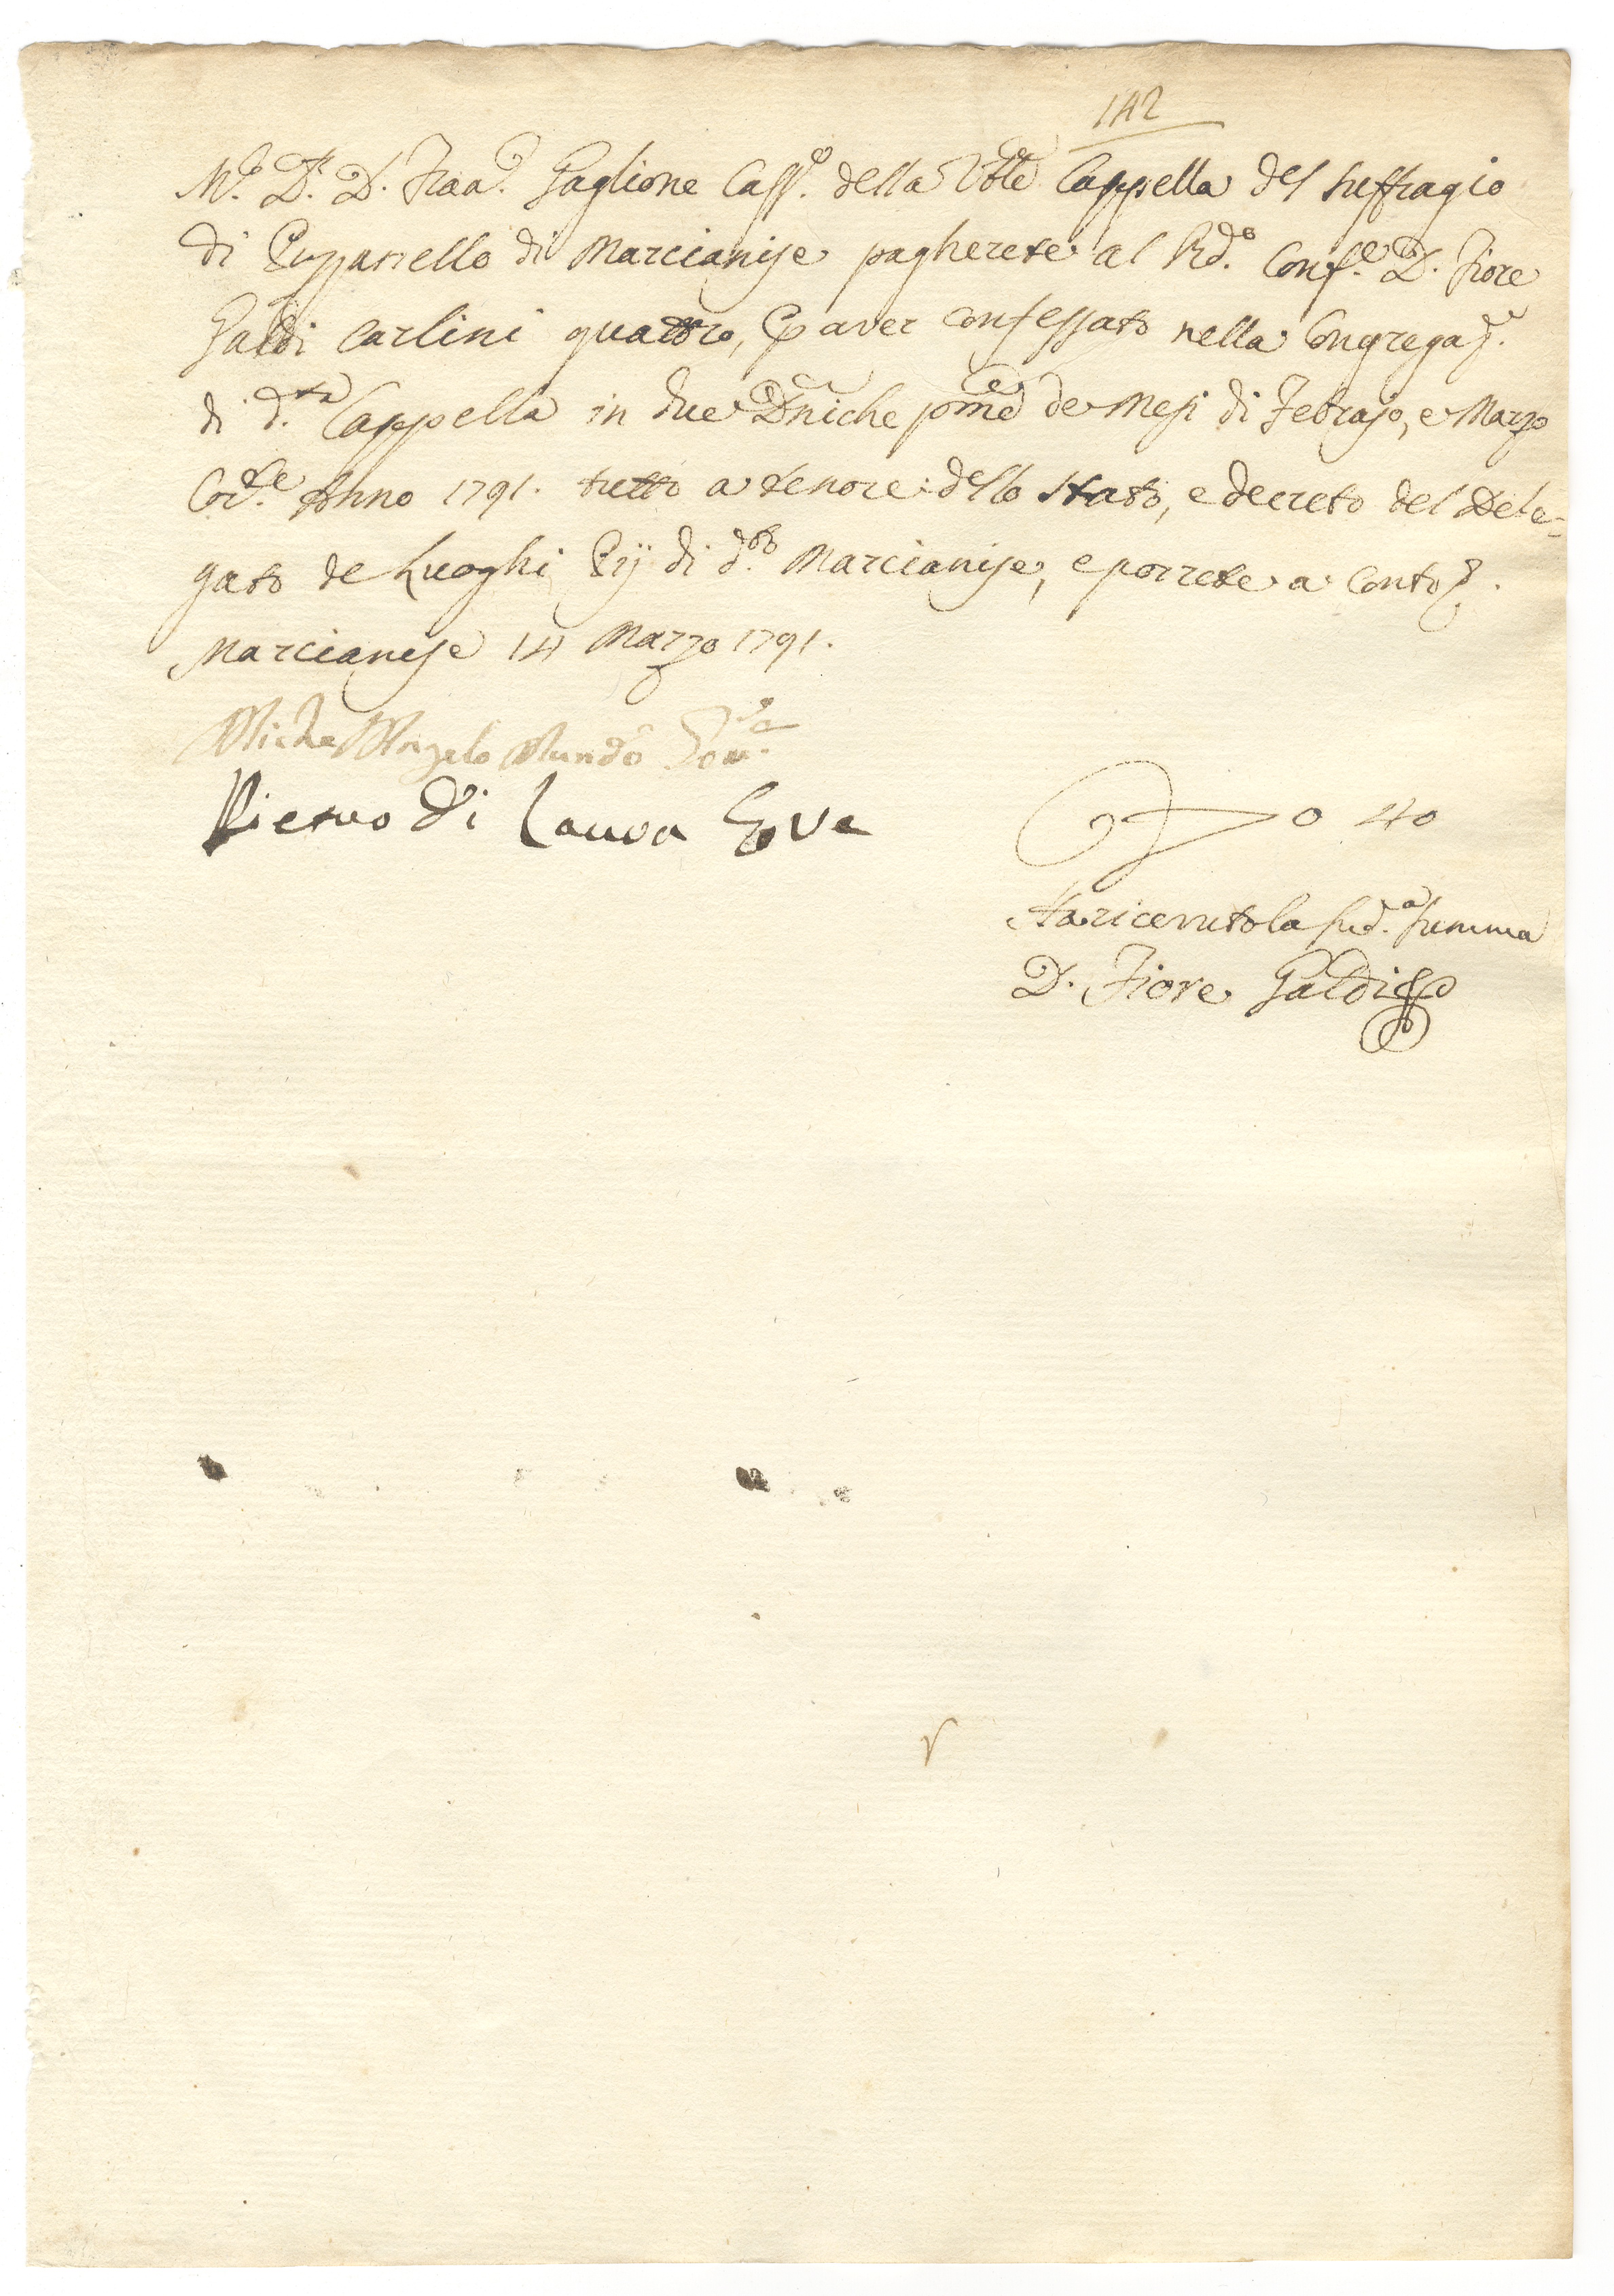 142
M.co D.r D. Fran.co Gaglione Cass.o della Ven.le Cappella del Suffragio
di Puzzaniello di Marcianise pagherete al R.do Conf.e D. Fiore
Galdi Carlini quattro, p aver confessato nella Congregaz.e
di d.ta Cappella in due Dniche pme de Mesi di Febrajo, e Marzo
Cor.te Anno 1791. tutto a tenore dello Stato, e decreto del Dele-
gato de Luoghi Pij di d.to Marcianise, e porrete a conto
Marcianise 14 Marzo 1791.
Michel'Angelo Mundo Gov.re
Pietro di Lauro Gove
0 40
Ha ricevuto la sud.a summa
D. Fiore Galdi